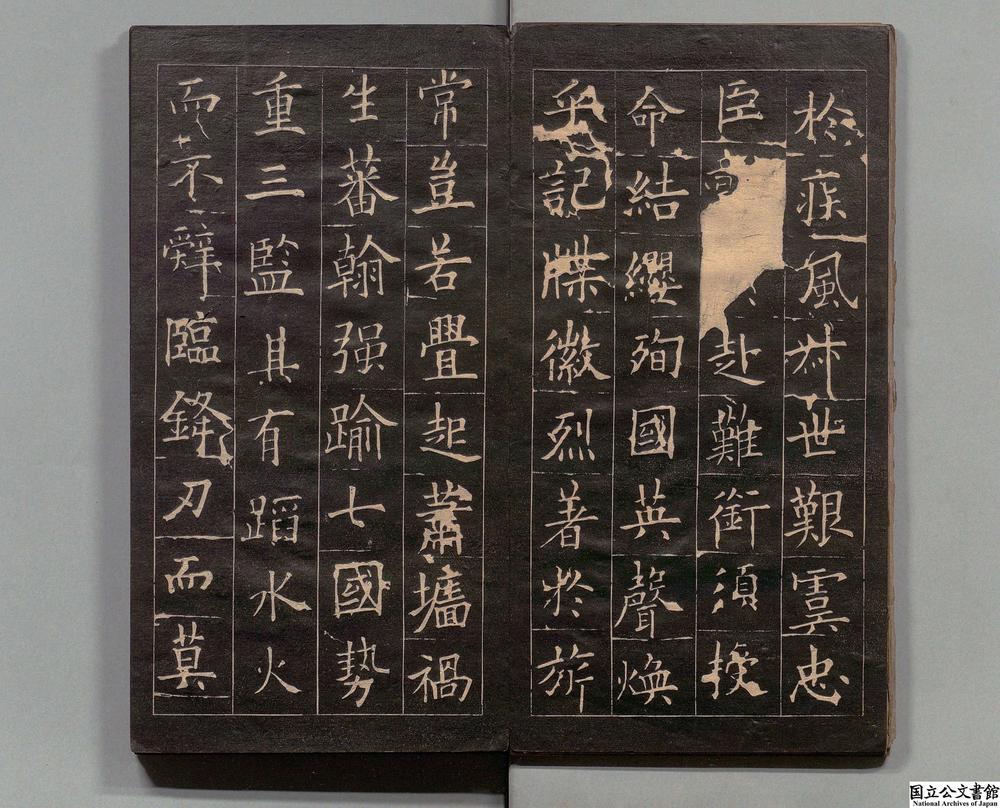 於疾風叔世艱虞忠
臣赴難銜須授
命結纓殉國英聲煥
乎記牒徽烈著於旂
常豈若舋起蕭墻禍
生蕃翰强踰七國勢
重三監其有蹈水火
而不辭臨鋒刃而莫
国立公文書館
National Archives of Japan